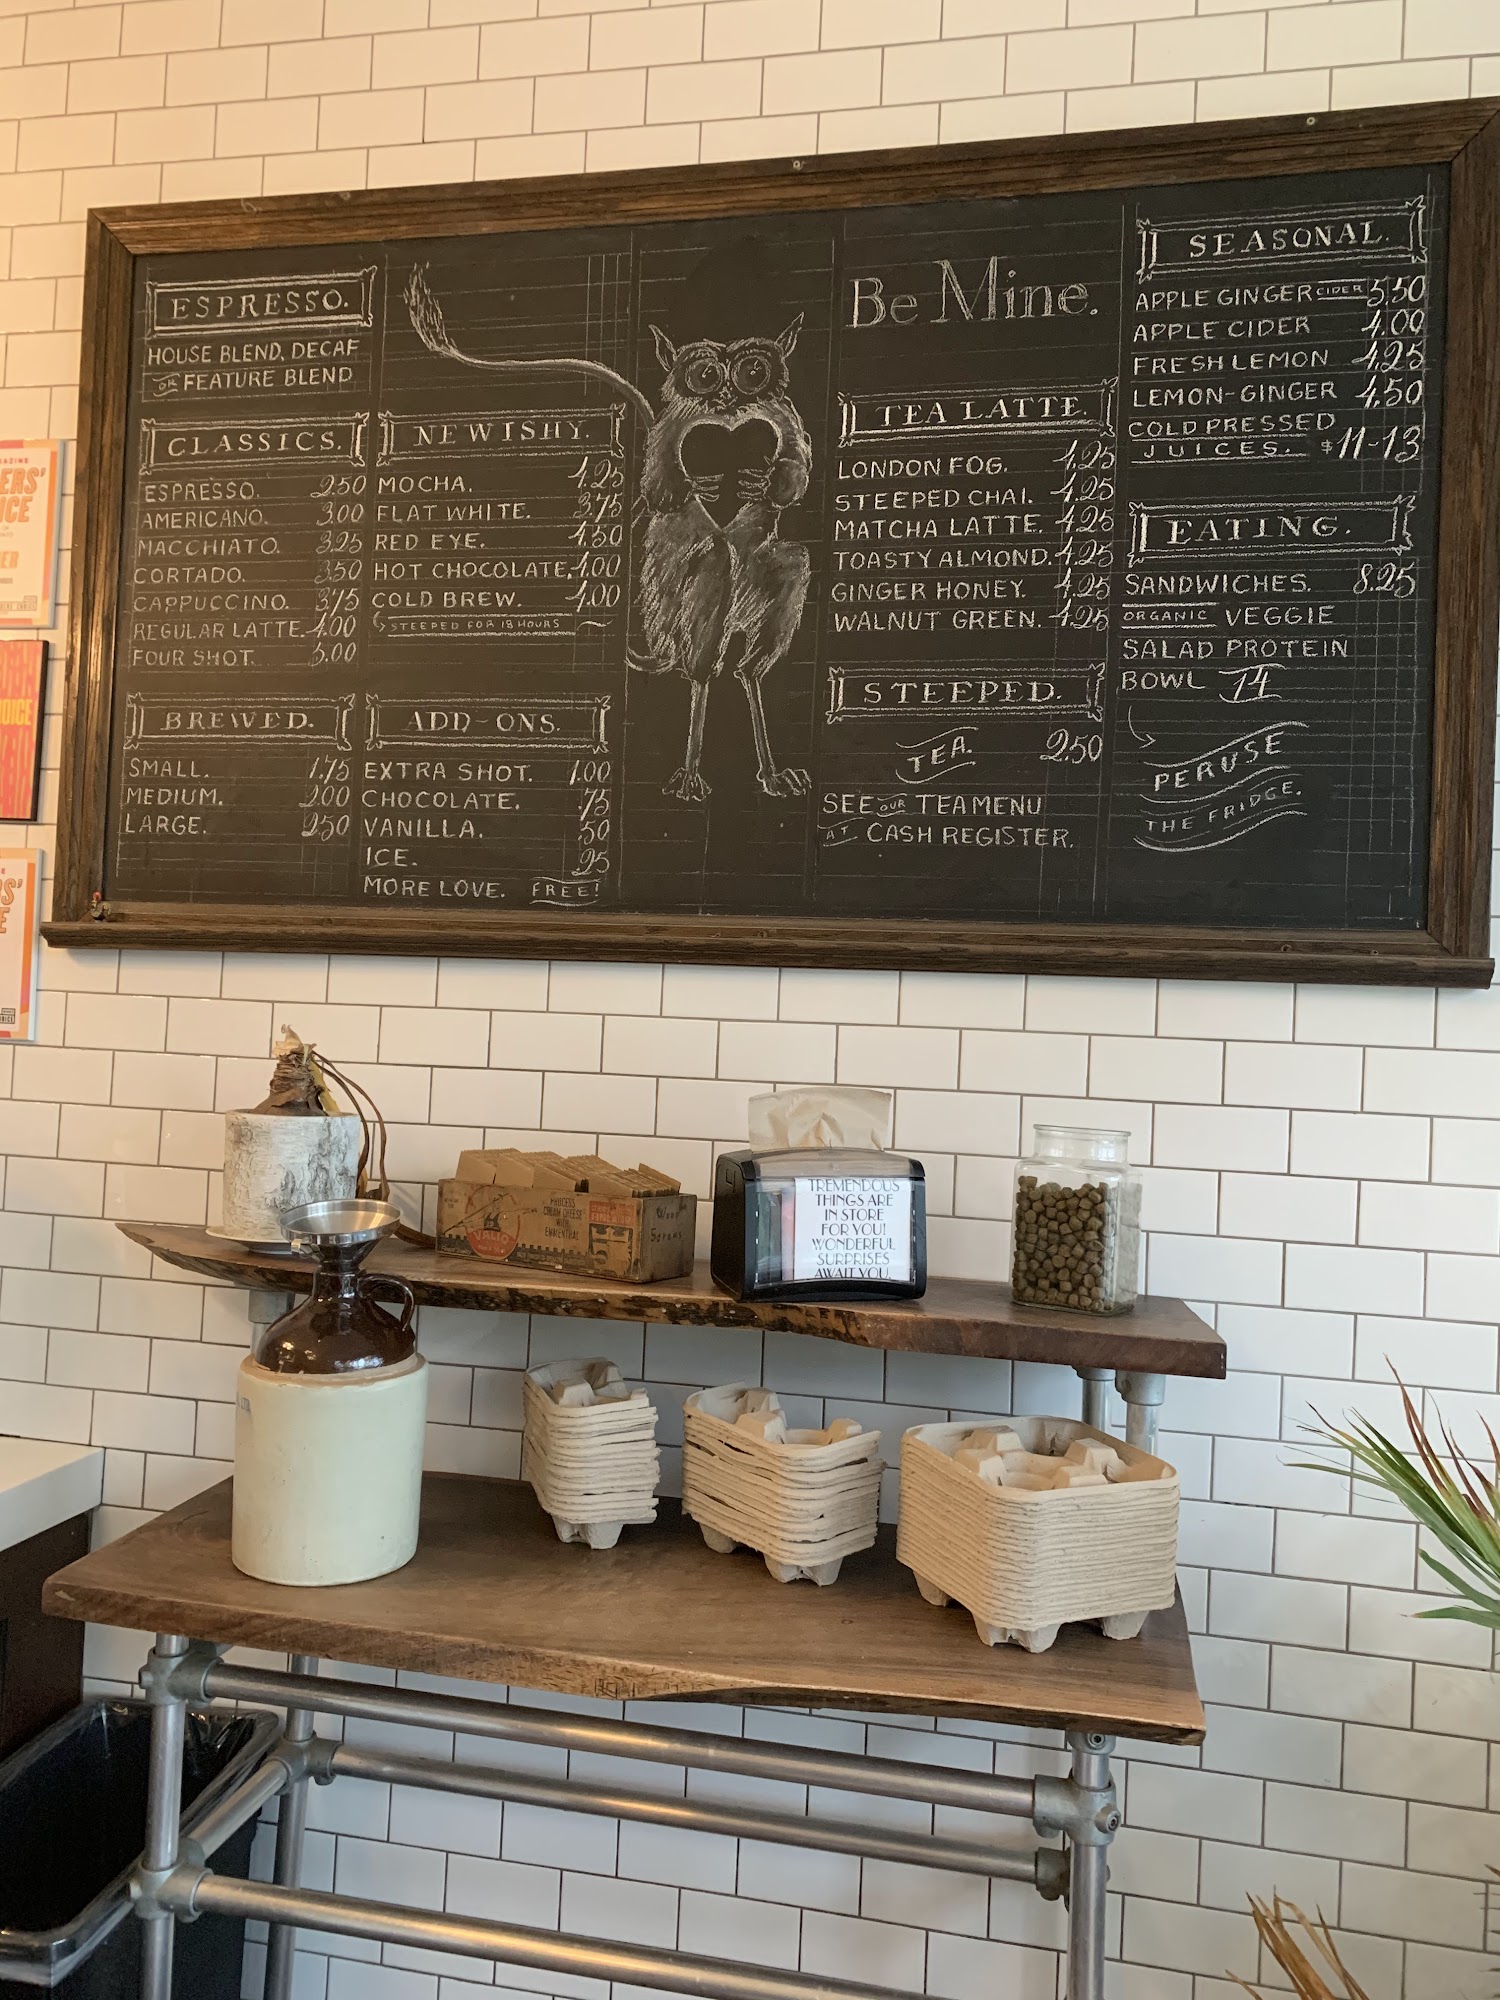 ESPRESSO.
HOUSE BLEND, DECAF
OR FEATURE BLEND
CLASSICS.
ESPRESSO. 2.50
AMERICANO. 3.00
MACCHIATO. 3.25
CORTADO. 3.50
CAPPUCCINO. 3.75
REGULAR LATTE. 4.00
FOUR SHOT. 5.00
BREWED.
SMALL. 1.75
MEDIUM. 2.00
LARGE. 2.50
NEWISHY.
MOCHA. 4.25
FLAT WHITE. 3.75
RED EYE. 4.50
HOT CHOCOLATE. 4.00
COLD BREW. 4.00
STEEPED FOR 18 HOURS
ADD-ONS.
EXTRA SHOT. 1.00
CHOCOLATE. .75
VANILLA. .50
ICE. .25
MORE LOVE. FREE!
Be Mine.
TEA LATTE.
LONDON FOG. 4.25
STEEPED CHAI. 4.25
MATCHA LATTE. 4.25
TOASTY ALMOND. 4.25
GINGER HONEY. 4.25
WALNUT GREEN. 4.25
STEEPED.
TEA. 2.50
SEE OUR TEA MENU
AT CASH REGISTER.
SEASONAL.
APPLE GINGER CIDER 5.50
APPLE CIDER 4.00
FRESH LEMON 4.25
LEMON-GINGER 4.50
COLD PRESSED
JUICES. $11-13
EATING.
SANDWICHES. 8.25
ORGANIC VEGGIE
SALAD PROTEIN
BOWL 14
PERUSE
THE FRIDGE.
VALIO
PROCESS
CREAM CHEESE
WITH
EMMENTHAL
TREMENDOUS
THINGS ARE
IN STORE
FOR YOU!
WONDERFUL
SURPRISES
AWAIT YOU.